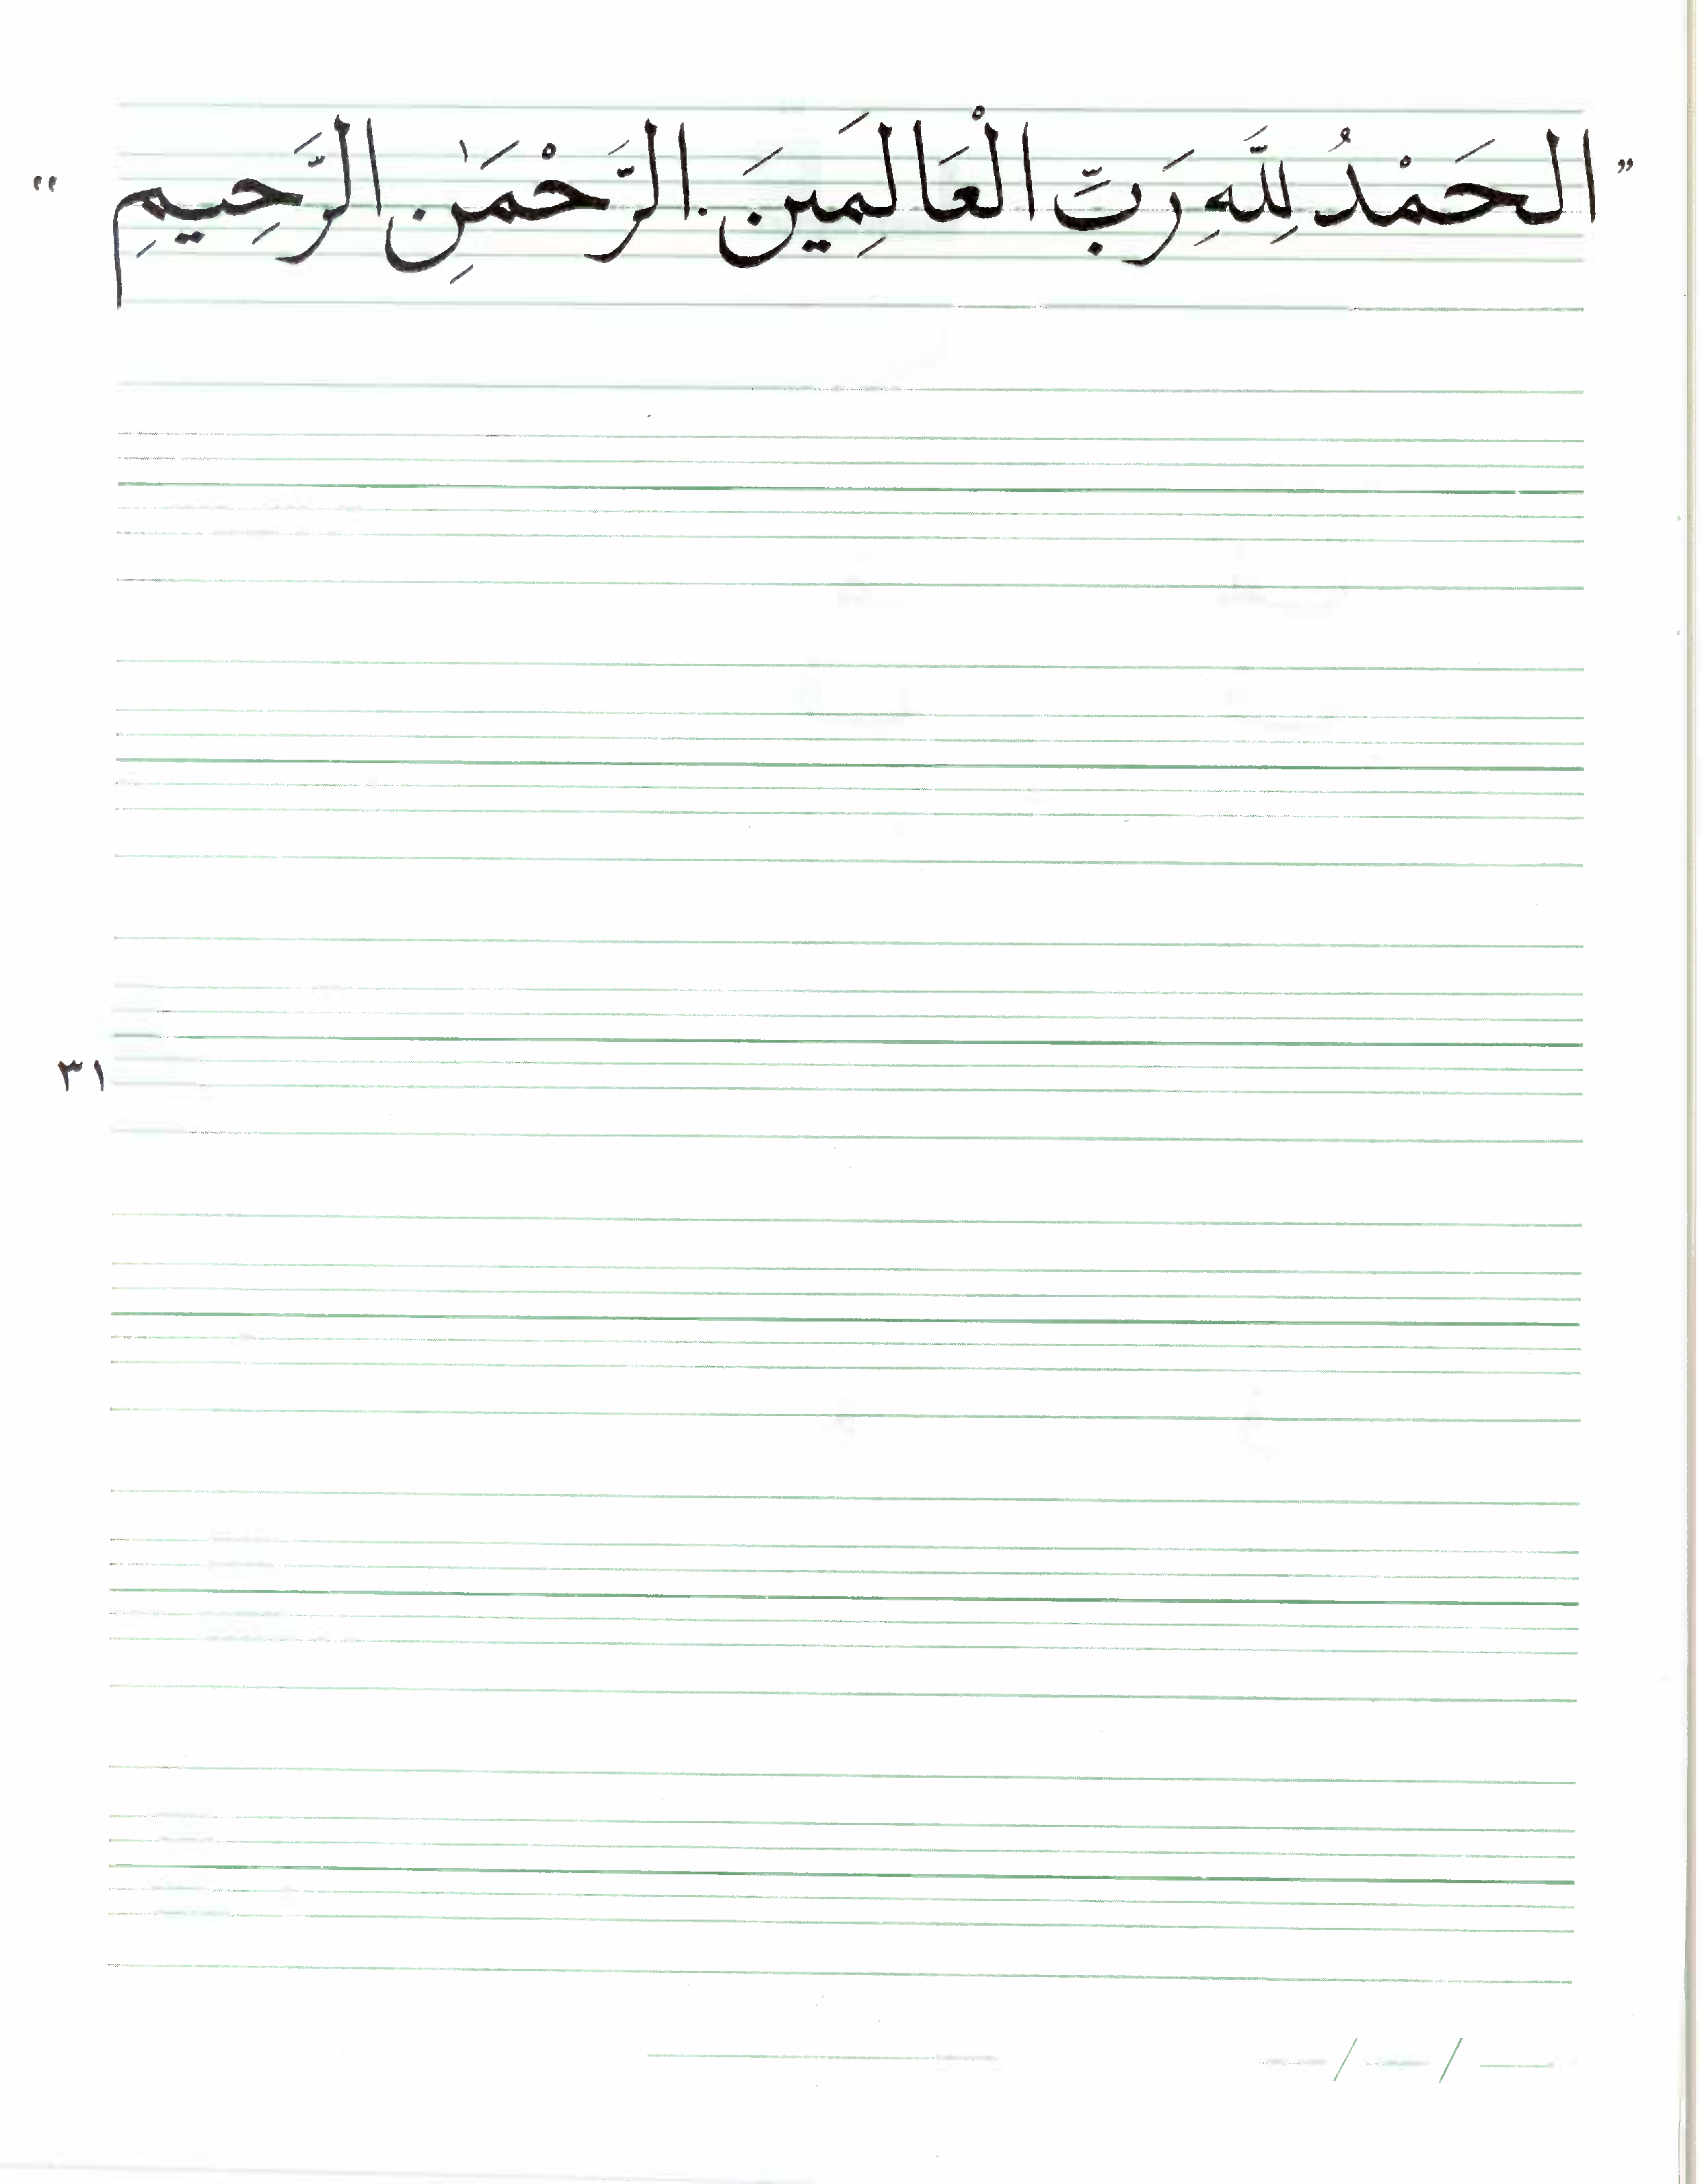 ”الحَمْدُ لِلَّهِ رَبِّ الْعَالَمِينَ . الرَّحْمَٰنِ الرَّحِيمِ“
٣١